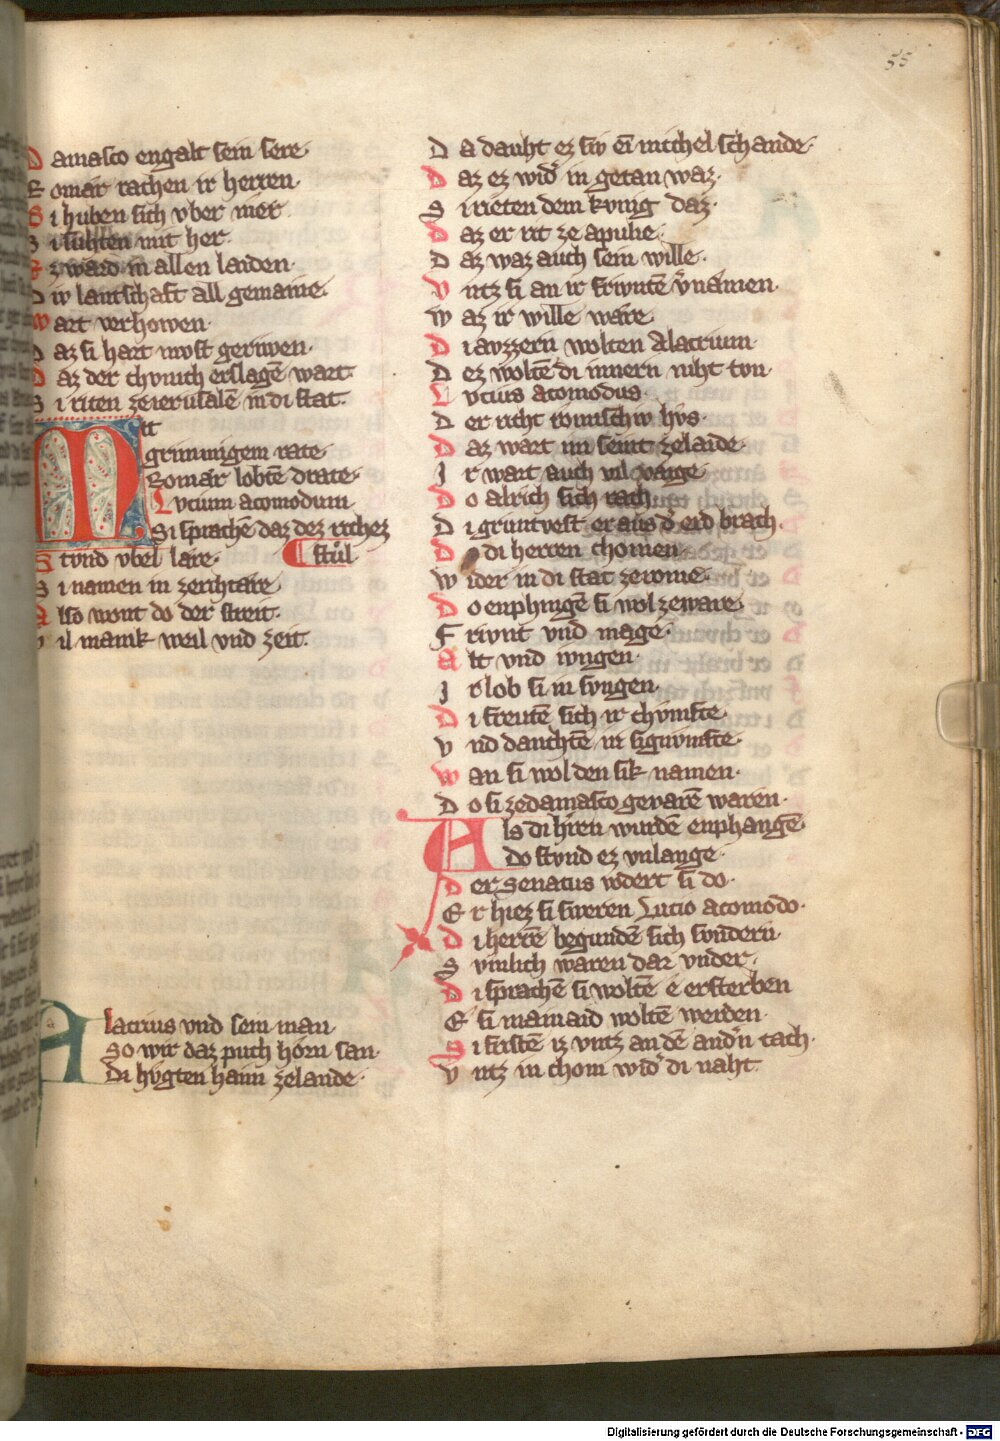 55
Damasco engalt sein sere·
Romar rachen ir herren·
Si huben sich vber mer
Si sůhten mit her·
Ez ward in allen laiden·
Div lantschaft all gemaine·
Wart verhowen·
Daz si hart mvst geriwen·
Daz der chvnich erslagē wart·
Si riten ze ierusalē in di stat·
Mit
grimmigem rate
Romar lobtē drate·
Lvcium acomodum
Si sprachē daz dez richez
stvnd vbel lare· stůl
Si namen in ze rihtare
Also wont do der streit·
Vil manik weil vnd zeit·
Alatrius vnd sein man
So wir daz puch hörn san·
Di hvgten haim zelande·
Da dauht ez siv ein michel schande·
Daz ez wid' in getan waz·
Si rieten dem kvnig daz·
Daz er rit ze apulie·
Daz waz auch sein wille·
Vntz si an ir frivntē v'namen
Waz ir wille ware·
Di avzzern wolten Alatrium
Dez woltē di innern niht tvn
Lvcius acomodus
Der riht römisch hvs·
Daz wart im seint ze laide·
Ir wart auch vil waige
Do alrich sich rach
Di gruntvest er aus d' erd brach·
Do di herren chomen·
Wider in di stat ze rome·
Do enphingē si wol zeware
Frivnt vnd mage·
Alt vnd ivngen
Ir lob si in svngen
Di freutē sich ir chvmfte·
Vnd dauchtē in sigvvmfte·
Wan si wol den sik namen·
Do si ze damasco gevarē waren·
Als di h'ren wurdē enphangē·
do stvnd ez vnlange·
Der Senatus vodert si do·
Er hiez si sweren Lucio acomodo·
Di herrē begundē sich svndern
Svmlich waren dar vnder·
Di sprachē si woltē e ersterben
E si mainaid woltē werden·
Si fristē iz vntz an dē and'n tach·
Vntz in chom wid' di naht·
Digitalisierung gefördert durch die Deutsche Forschungsgemeinschaft - DFG